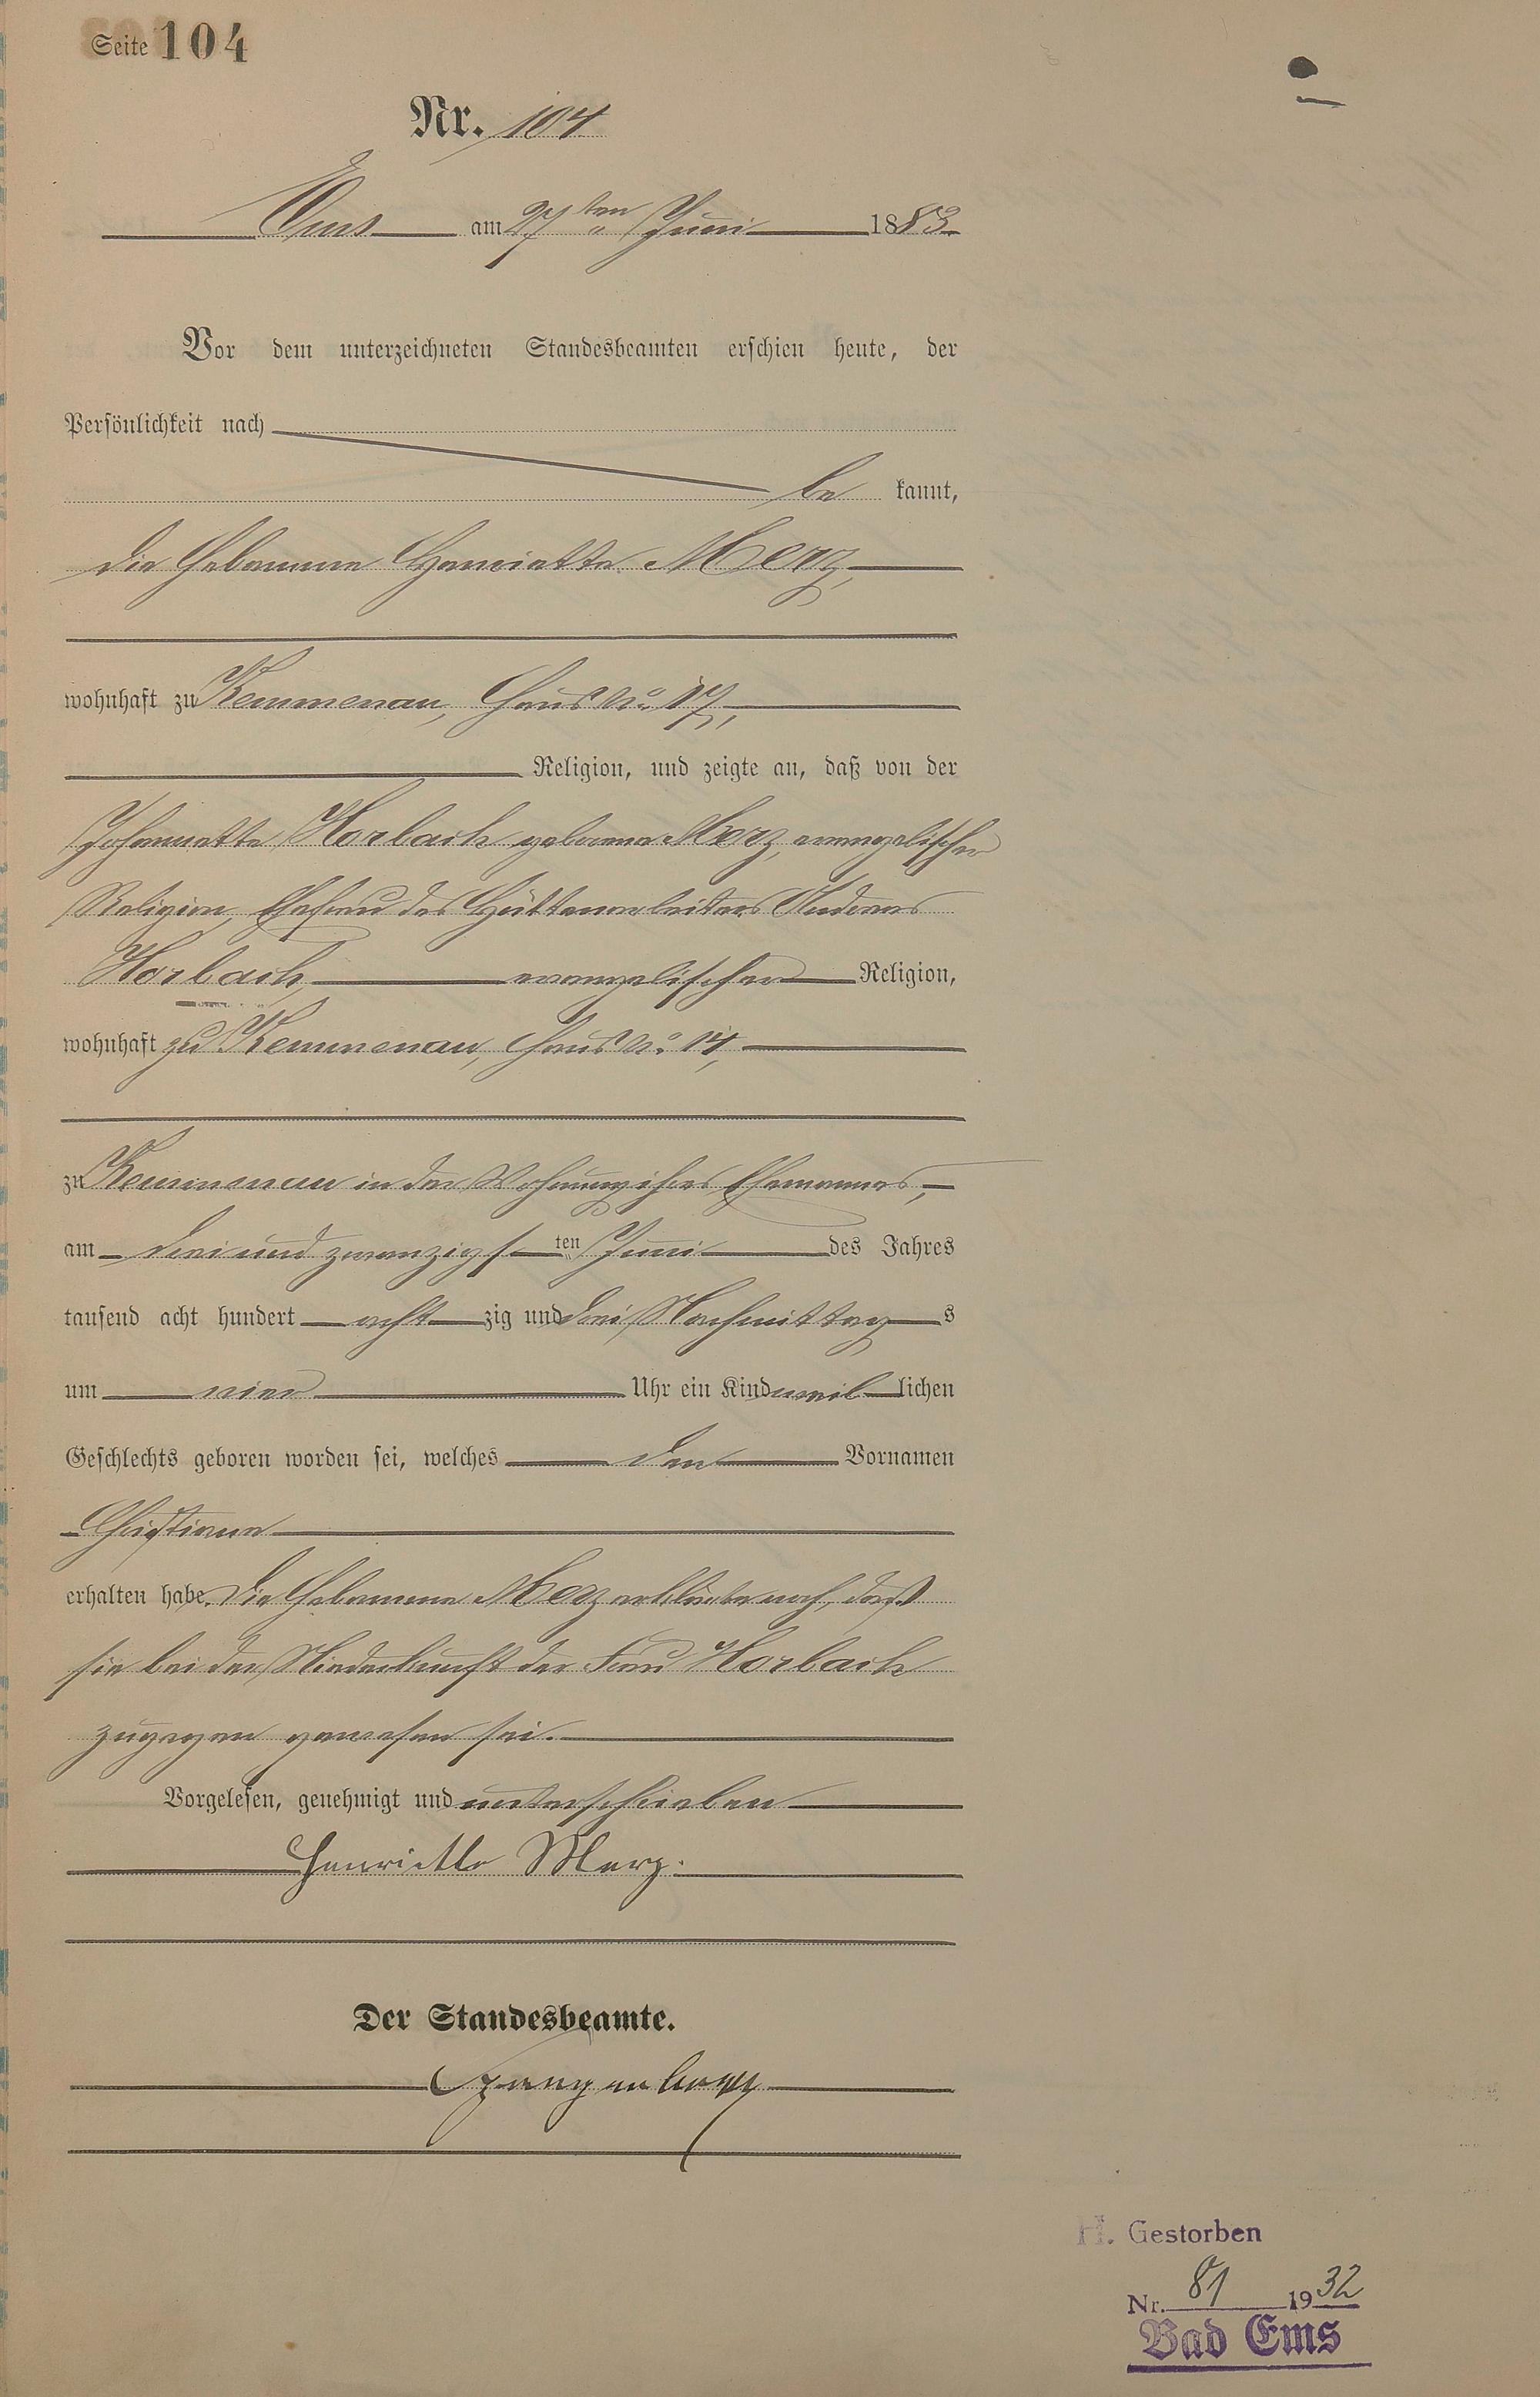 Seite 104
Nr. 104
Ems am 27ten Juni 1883.
Vor dem unterzeichneten Standesbeamten erschien heute, der
Persönlichkeit nach
be kannt,
die Hebamme Henriette Merz,
wohnhaft zu Kemmenau, Haus No. 17,
Religion, und zeigte an, daß von der
Johannette Horbach geborene Merz, evangelischer
Religion, Ehefrau des Hüttenarbeiters Andreas
Horbach, evangelischer Religion,
wohnhaft zu Kemmenau, Haus No. 14,
zu Kemmenau in der Wohnung ihres Ehemannes,
am drei und zwanzigsten Juni des Jahres
tausend acht hundert acht zig und drei Nachmittags
um vier Uhr ein Kind weiblichen
Geschlechts geboren worden sei, welches den Vornamen
Christiane
erhalten habe. Die Hebamme Merz erklärte noch, daß
sie bei der Niederkunft der Frau Horbach
zugegen gewesen sei.
Vorgelesen, genehmigt und unterschrieben
Henriette Merz.
Der Standesbeamte.
H. Gestorben
Nr. 81 1932
Bad Ems